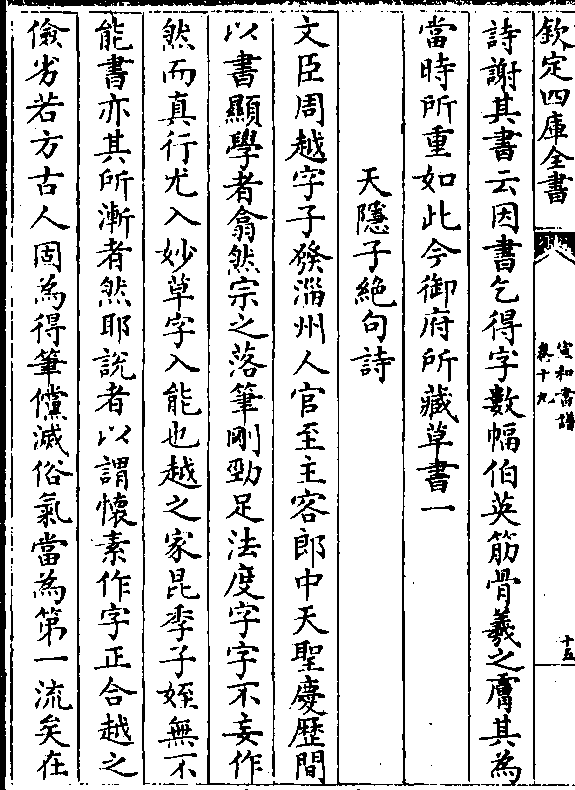 欽定四庫全書
宣和書譜
卷十九
十五
詩謝其書云因書乞得字數幅伯英筋骨羲之膚其為
當時所重如此今御府所藏草書一
天隱子絶句詩
文臣周越字子發淄州人官至主客郎中天聖慶歷間
以書顯學者翕然宗之落筆剛勁足法度字字不妄作
然而真行尤入妙草字入能也越之家昆季子姪無不
能書亦其所漸者然耶說者以謂懷素作字正合越之
儉劣若方古人固為得筆儻滅俗氣當為第一流矣在